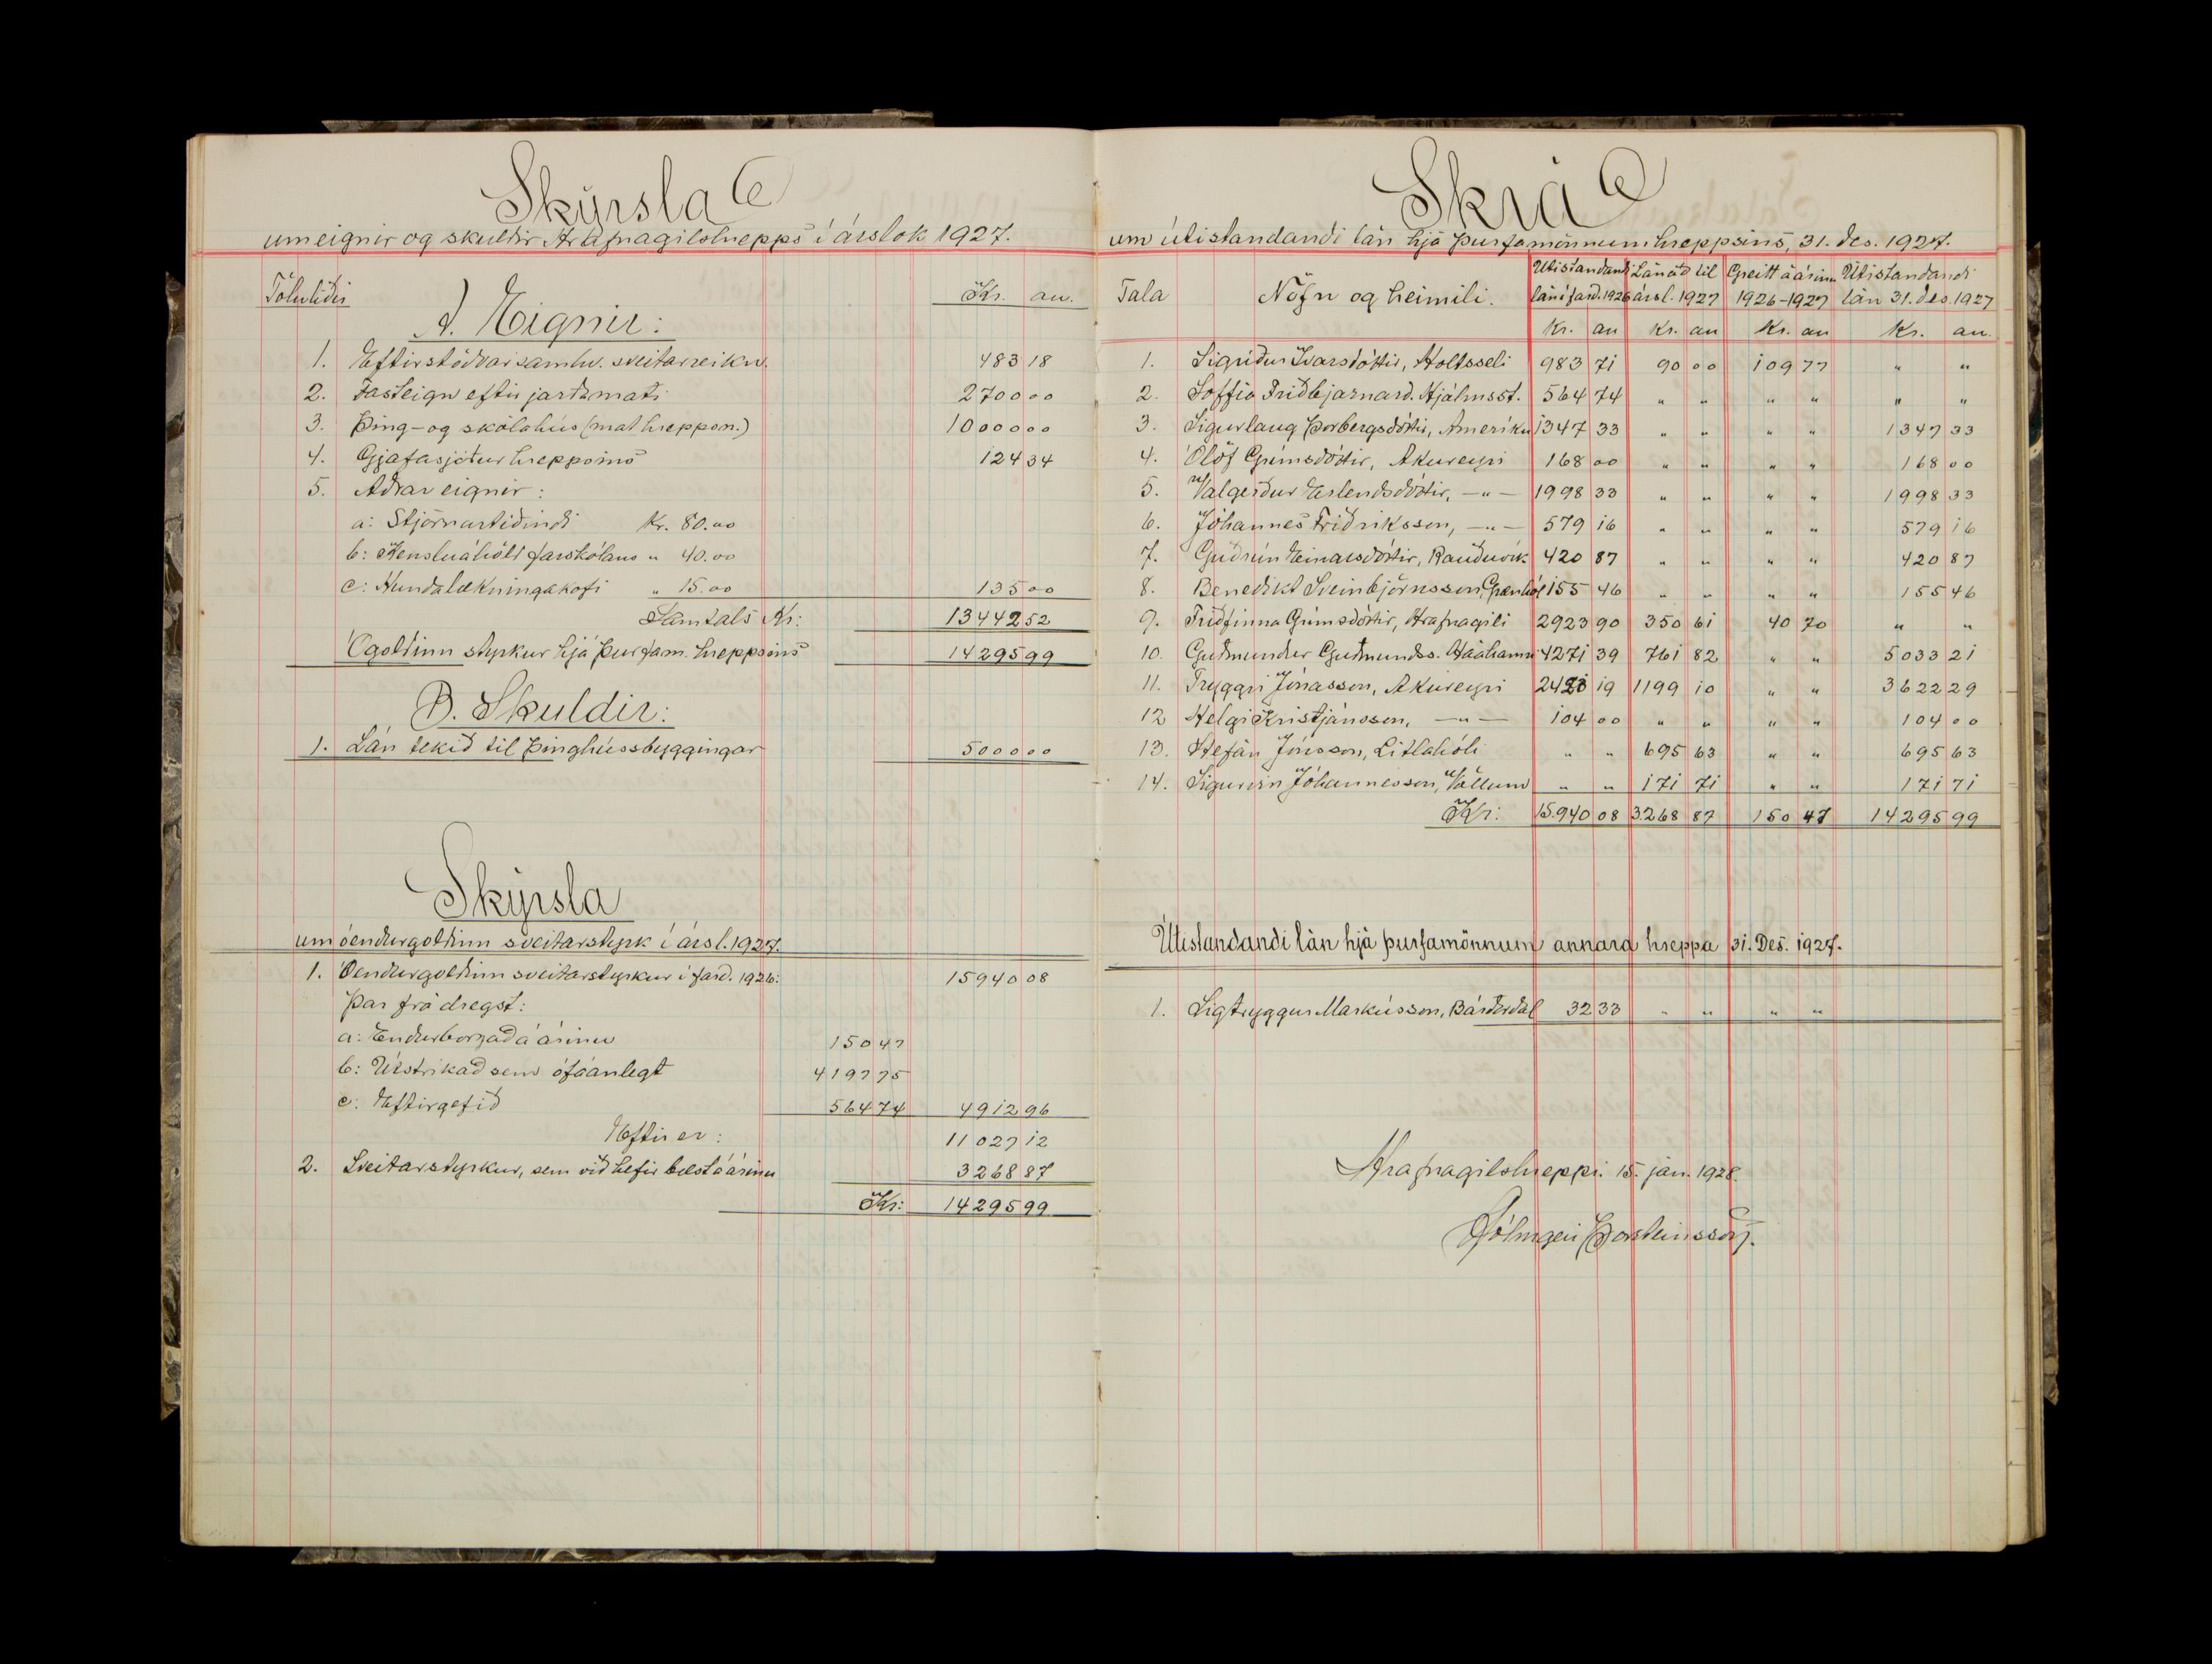 Skýrsla
um eignir og skuldir Hrafnagilshrepps í árslok 1927.
Töluliðir Kr. au.
A. Eignir:
1. Eftirstöðvar samkv. sveitarreikn. 483 18
2. Fasteign eftir jarðamati 2700 00
3. Þing- og skólahús (mat hreppsn.) 10000 00
4. Gjafasjóður hreppsins 124 34
5. Aðrar eignir:
a: Stjórnartíðindi Kr. 80.00
b: Kensluáhöld farskólans " 40.00
c: Hundalækningakofi " 15.00 135 00
Samtals Kr: 13442 52
Ógoldinn styrkur hjá þurfam. hreppsins 14295 99
B. Skuldir:
1. Lán tekið til þinghússbyggingar 5000 00
Skýrsla
um óendurgoldinn sveitarstyrk í ársl. 1927.
1. Óendurgoldinn sveitarstyrkur í fard. 1926: 15940 08
Þar frá dregst:
a: Endurborgað á árinu 150 47
b: Útstrikað sem ófáanlegt 4197 75
c: Eftirgefið 564 74 4912 96
Eftir er: 11027 12
2. Sveitarstyrkur, sem við hefir bæst á árinu 3268 87
Kr: 14295 99
Skrá
um útistandandi lán hjá þurfamönnum hreppsins, 31. des. 1927.
Tala Nöfn og heimili. Útistandandi lán í fard. 1926 Lánað til ársl. 1927 Greitt á árinu 1926-1927 Útistandandi lán 31. des. 1927
Kr. au Kr. au Kr. au Kr. au.
1. Sigríður Ívarsdóttir, Holtsseli 983 71 90 00 109 77 " "
2. Soffía Friðbjarnard. Hjálmsst. 564 74 " " " " " "
3. Sigurlaug Þorbergsdóttir, Ameríku 1347 33 " " " " 1347 33
4. Ólöf Grímsdóttir, Akureyri 168 00 " " " " 168 00
5. Valgerður Erlendsdóttir, —"— 1998 33 " " " " 1998 33
6. Jóhannes Friðriksson, —"— 579 16 " " " " 579 16
7. Guðrún Einarsdóttir, Rauðuvík 420 87 " " " " 420 87
8. Benedikt Sveinbjörnsson, Grænhól 155 46 " " " " 155 46
9. Friðfinna Grímsdóttir, Hrafnagili 2923 90 350 61 40 70 " "
10. Guðmundur Guðmundss. Háahamri 4271 39 761 82 " " 5033 21
11. Tryggvi Jónasson, Akureyri 2423 19 1199 10 " " 3622 29
12 Helgi Kristjánsson, —"— 104 00 " " " " 104 00
13. Stefán Jónsson, Litlahóli " " 695 63 " " 695 63
14. Sigurvin Jóhannesson, Völlum " " 171 71 " " 171 71
Kr: 15.940 08 3268 87 150 47 14295 99
Útistandandi lán hjá þurfamönnum annara hreppa 31. Des. 1927.
1. Sigtryggur Markússon, Bárðardal 32 33 " " " "
Hrafnagilshreppi. 15. jan. 1928.
Hólmgeir Þorsteinsson.